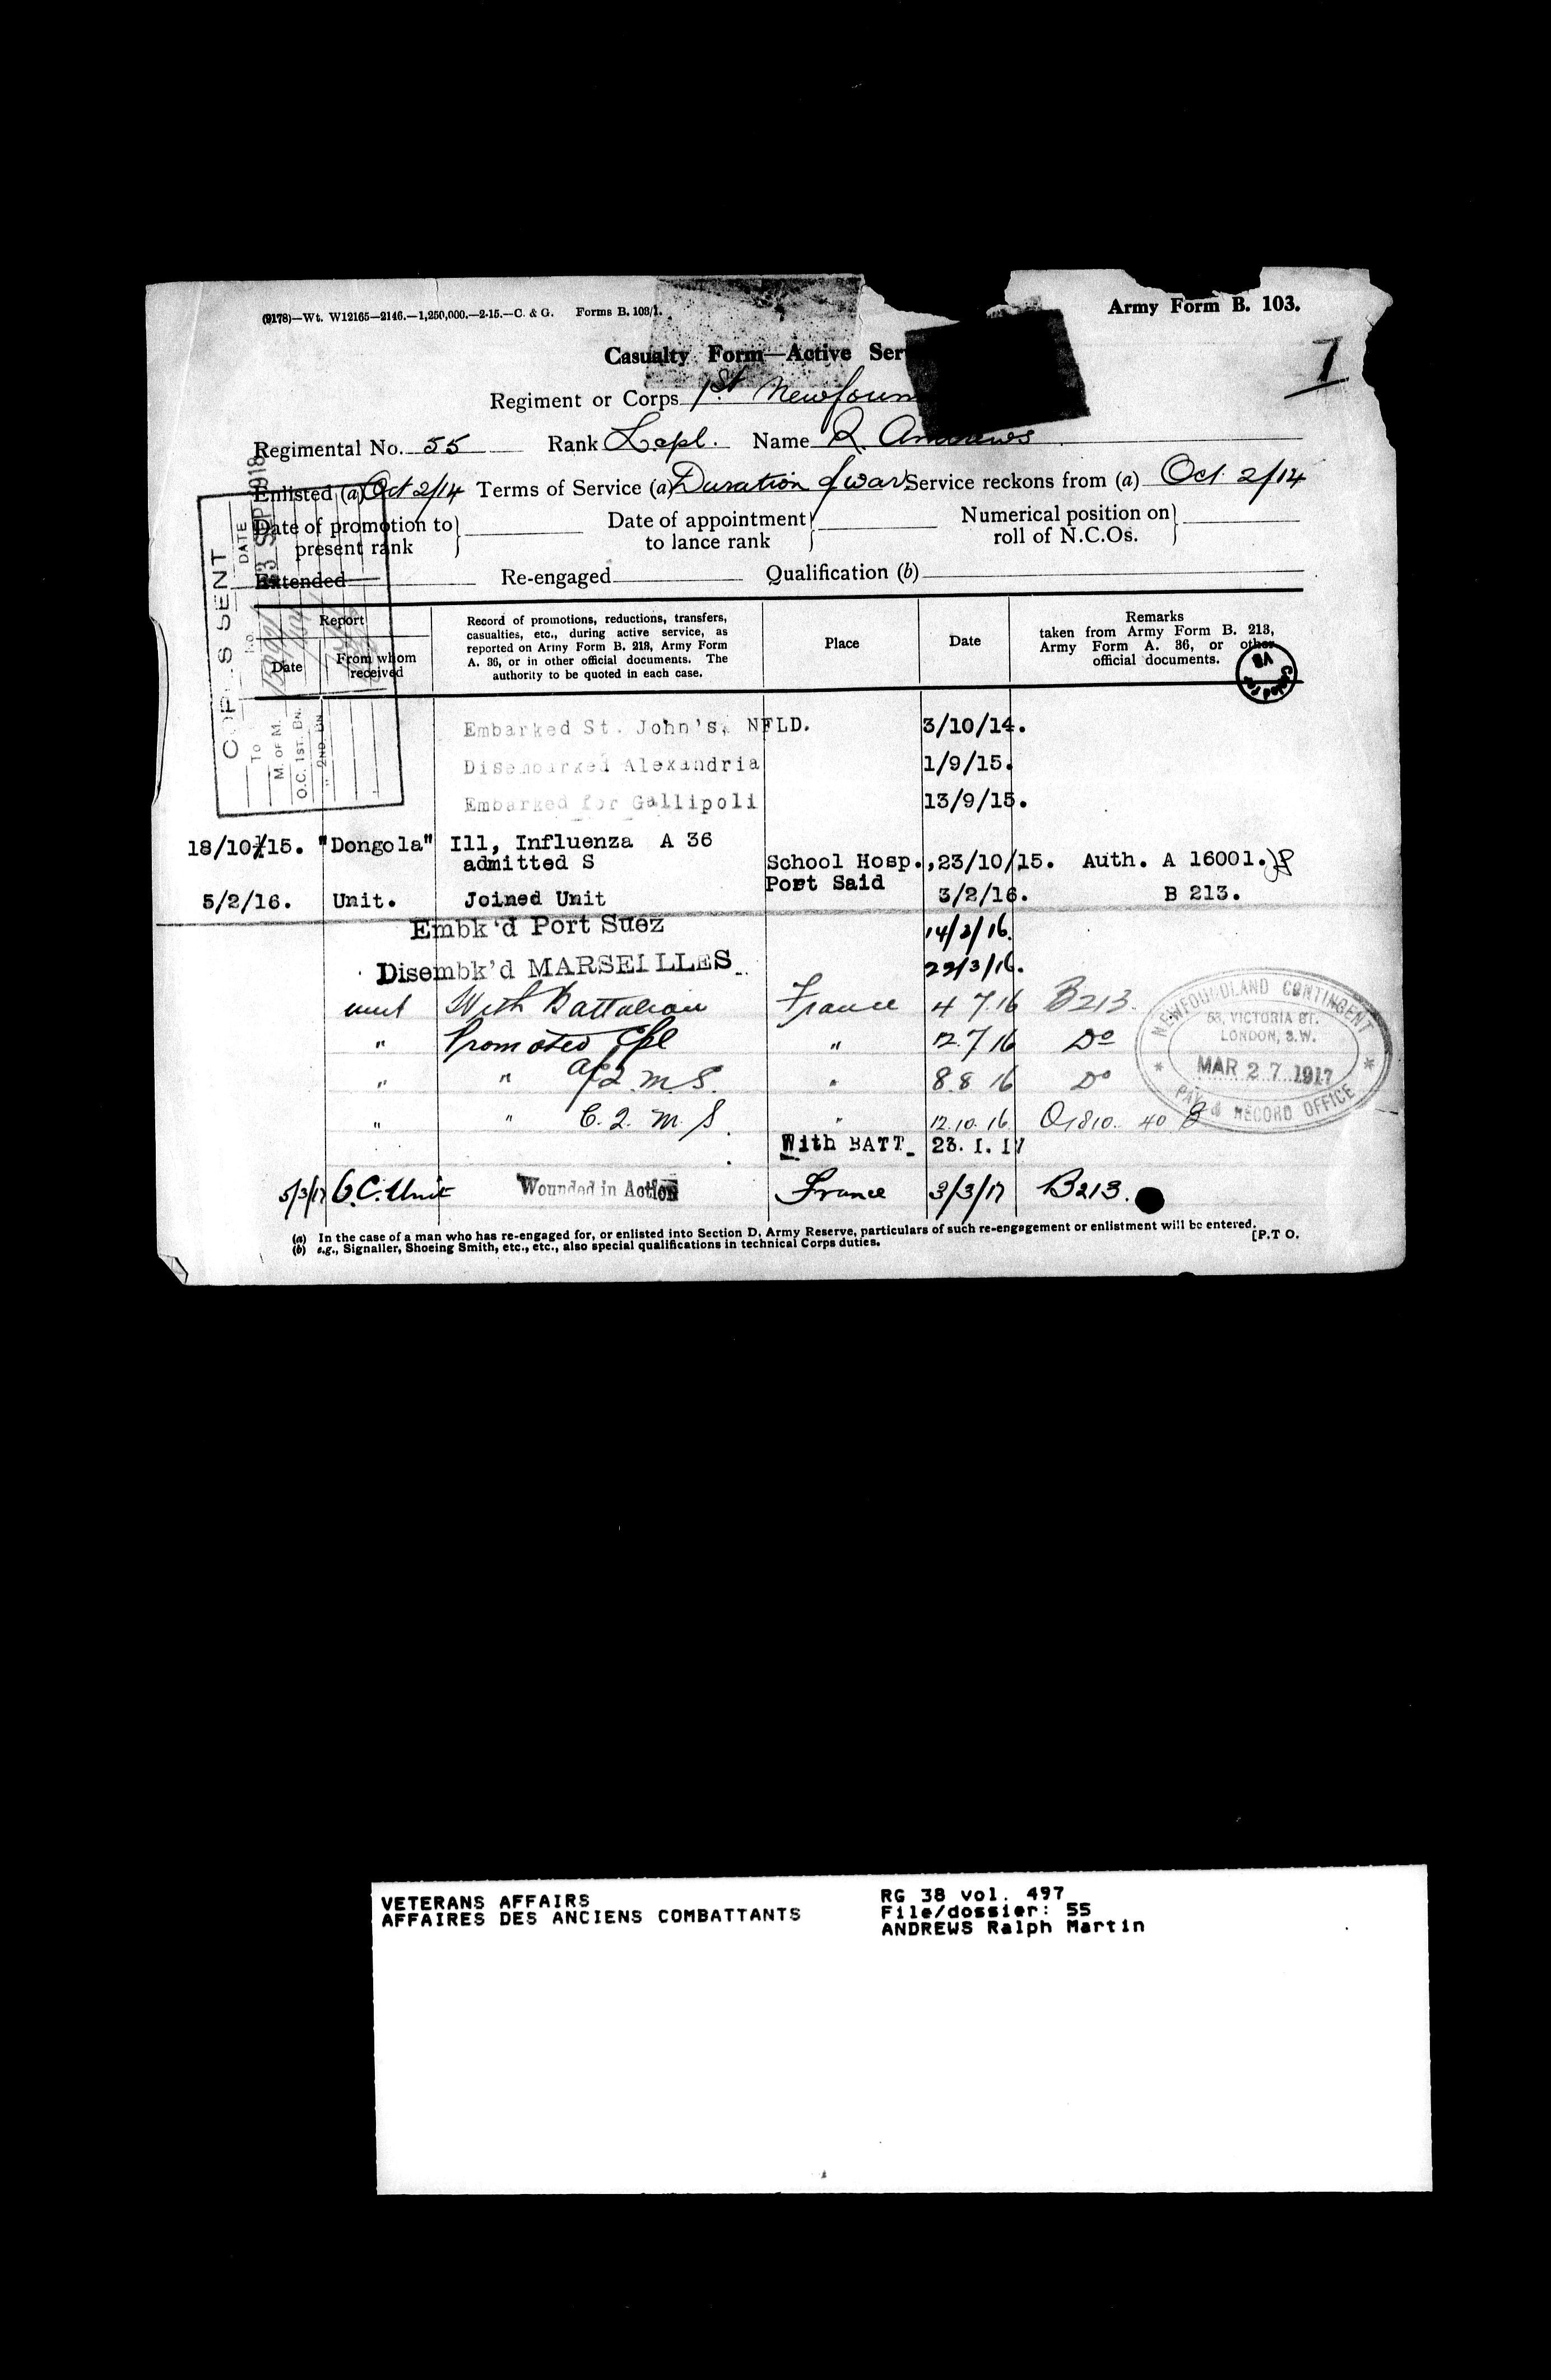 (9178)—Wt. W12165—2146.—1,250,000.—2-15.—C. & G. Forms B. 103/1.
Army Form B. 103.
1
Casualty Form—Active Ser
Regiment or Corps 1st Newfoun
Regimental No. 55 Rank L.cpl. Name R. Andrews
Enlisted (a) Oct 2/14 Terms of Service (a) Duration of war Service reckons from (a) Oct. 2/14
Date of promotion to present rank } Date of appointment to lance rank } Numerical position on roll of N.C.Os. }
Extended Re-engaged Qualification (b)
COPIES SENT
DATE
3 SEP 1918
NO.
TO
M. OF M.
O.C. 1ST. BN.
" 2ND. BN.
Report
Date
From whom received
Record of promotions, reductions, transfers,
casualties, etc., during active service, as
reported on Army Form B. 213, Army Form
A. 36, or in other official documents. The
authority to be quoted in each case.
Place
Date
Remarks
taken from Army Form B. 213,
Army Form A. 36, or other
official documents.
Embarked St. John's, NFLD. 3/10/14.
Disembarked Alexandria 1/9/15.
Embarked for Gallipoli 13/9/15.
18/10/15. "Dongola" Ill, Influenza A 36
admitted S School Hosp., 23/10/15. Auth. A 16001.
Port Said
5/2/16. Unit. Joined Unit 3/2/16. B 213.
Embk'd Port Suez 14/3/16.
Disembk'd MARSEILLES 22/3/16.
unit With Battalion France 4 7.16 B213.
" Promoted Cpl " 12.7 16 Do
" " a/Q.M.S. " 8.8 16 Do
" " C.Q.M.S. " 12.10.16. O1810. 40
With BATT. 23. 1. 17
5/3/17 O.C. Unit Wounded in Action France 3/3/17 B213.
NEWFOUNDLAND CONTINGENT
58, VICTORIA ST.
LONDON, S.W.
MAR 27 1917
PAY & RECORD OFFICE
(a) In the case of a man who has re-engaged for, or enlisted into Section D, Army Reserve, particulars of such re-engagement or enlistment will be entered.
(b) e.g., Signaller, Shoeing Smith, etc., etc., also special qualifications in technical Corps duties.
[P.T O.
VETERANS AFFAIRS
AFFAIRES DES ANCIENS COMBATTANTS
RG 38 vol. 497
File/dossier: 55
ANDREWS Ralph Martin